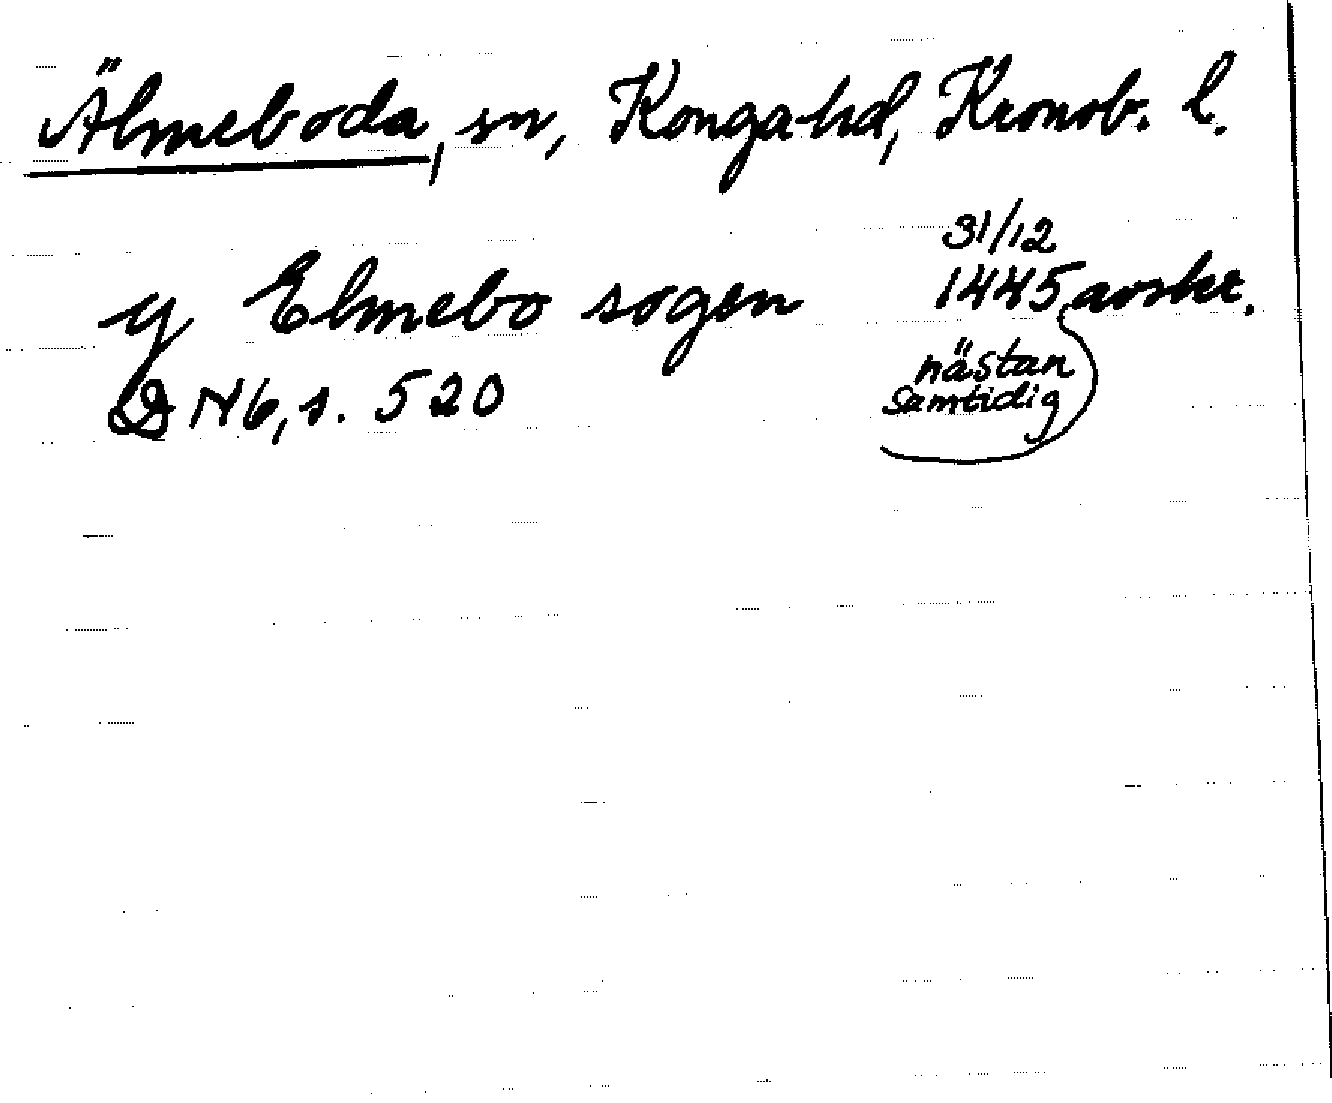 Älmeboda, sn, Konga hd, Kronob. l.
y Elmebo sogen 31/12 1445 avskr.
DN 6, s. 520 nästan
samtidig